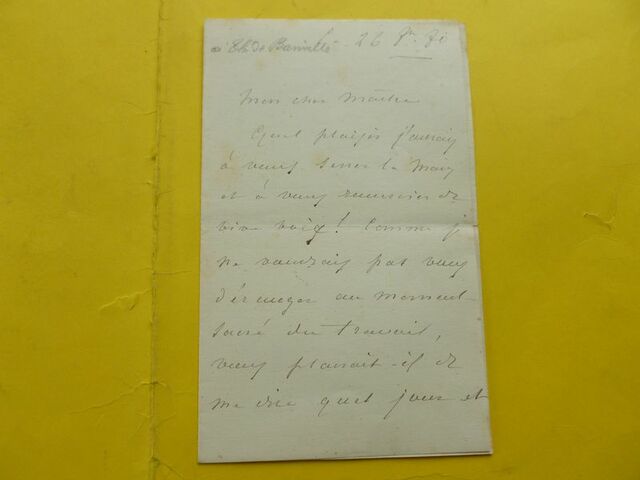 à Th. de Banville
26 Jr. 71
Mon cher Maître
Quel plaisir j'aurai
à vous serrer la main
et à vous remercier de
vive voix! Comme je
ne voudrais pas vous
déranger au moment
sacré du travail,
vous plairait-il de
me dire quel jour et